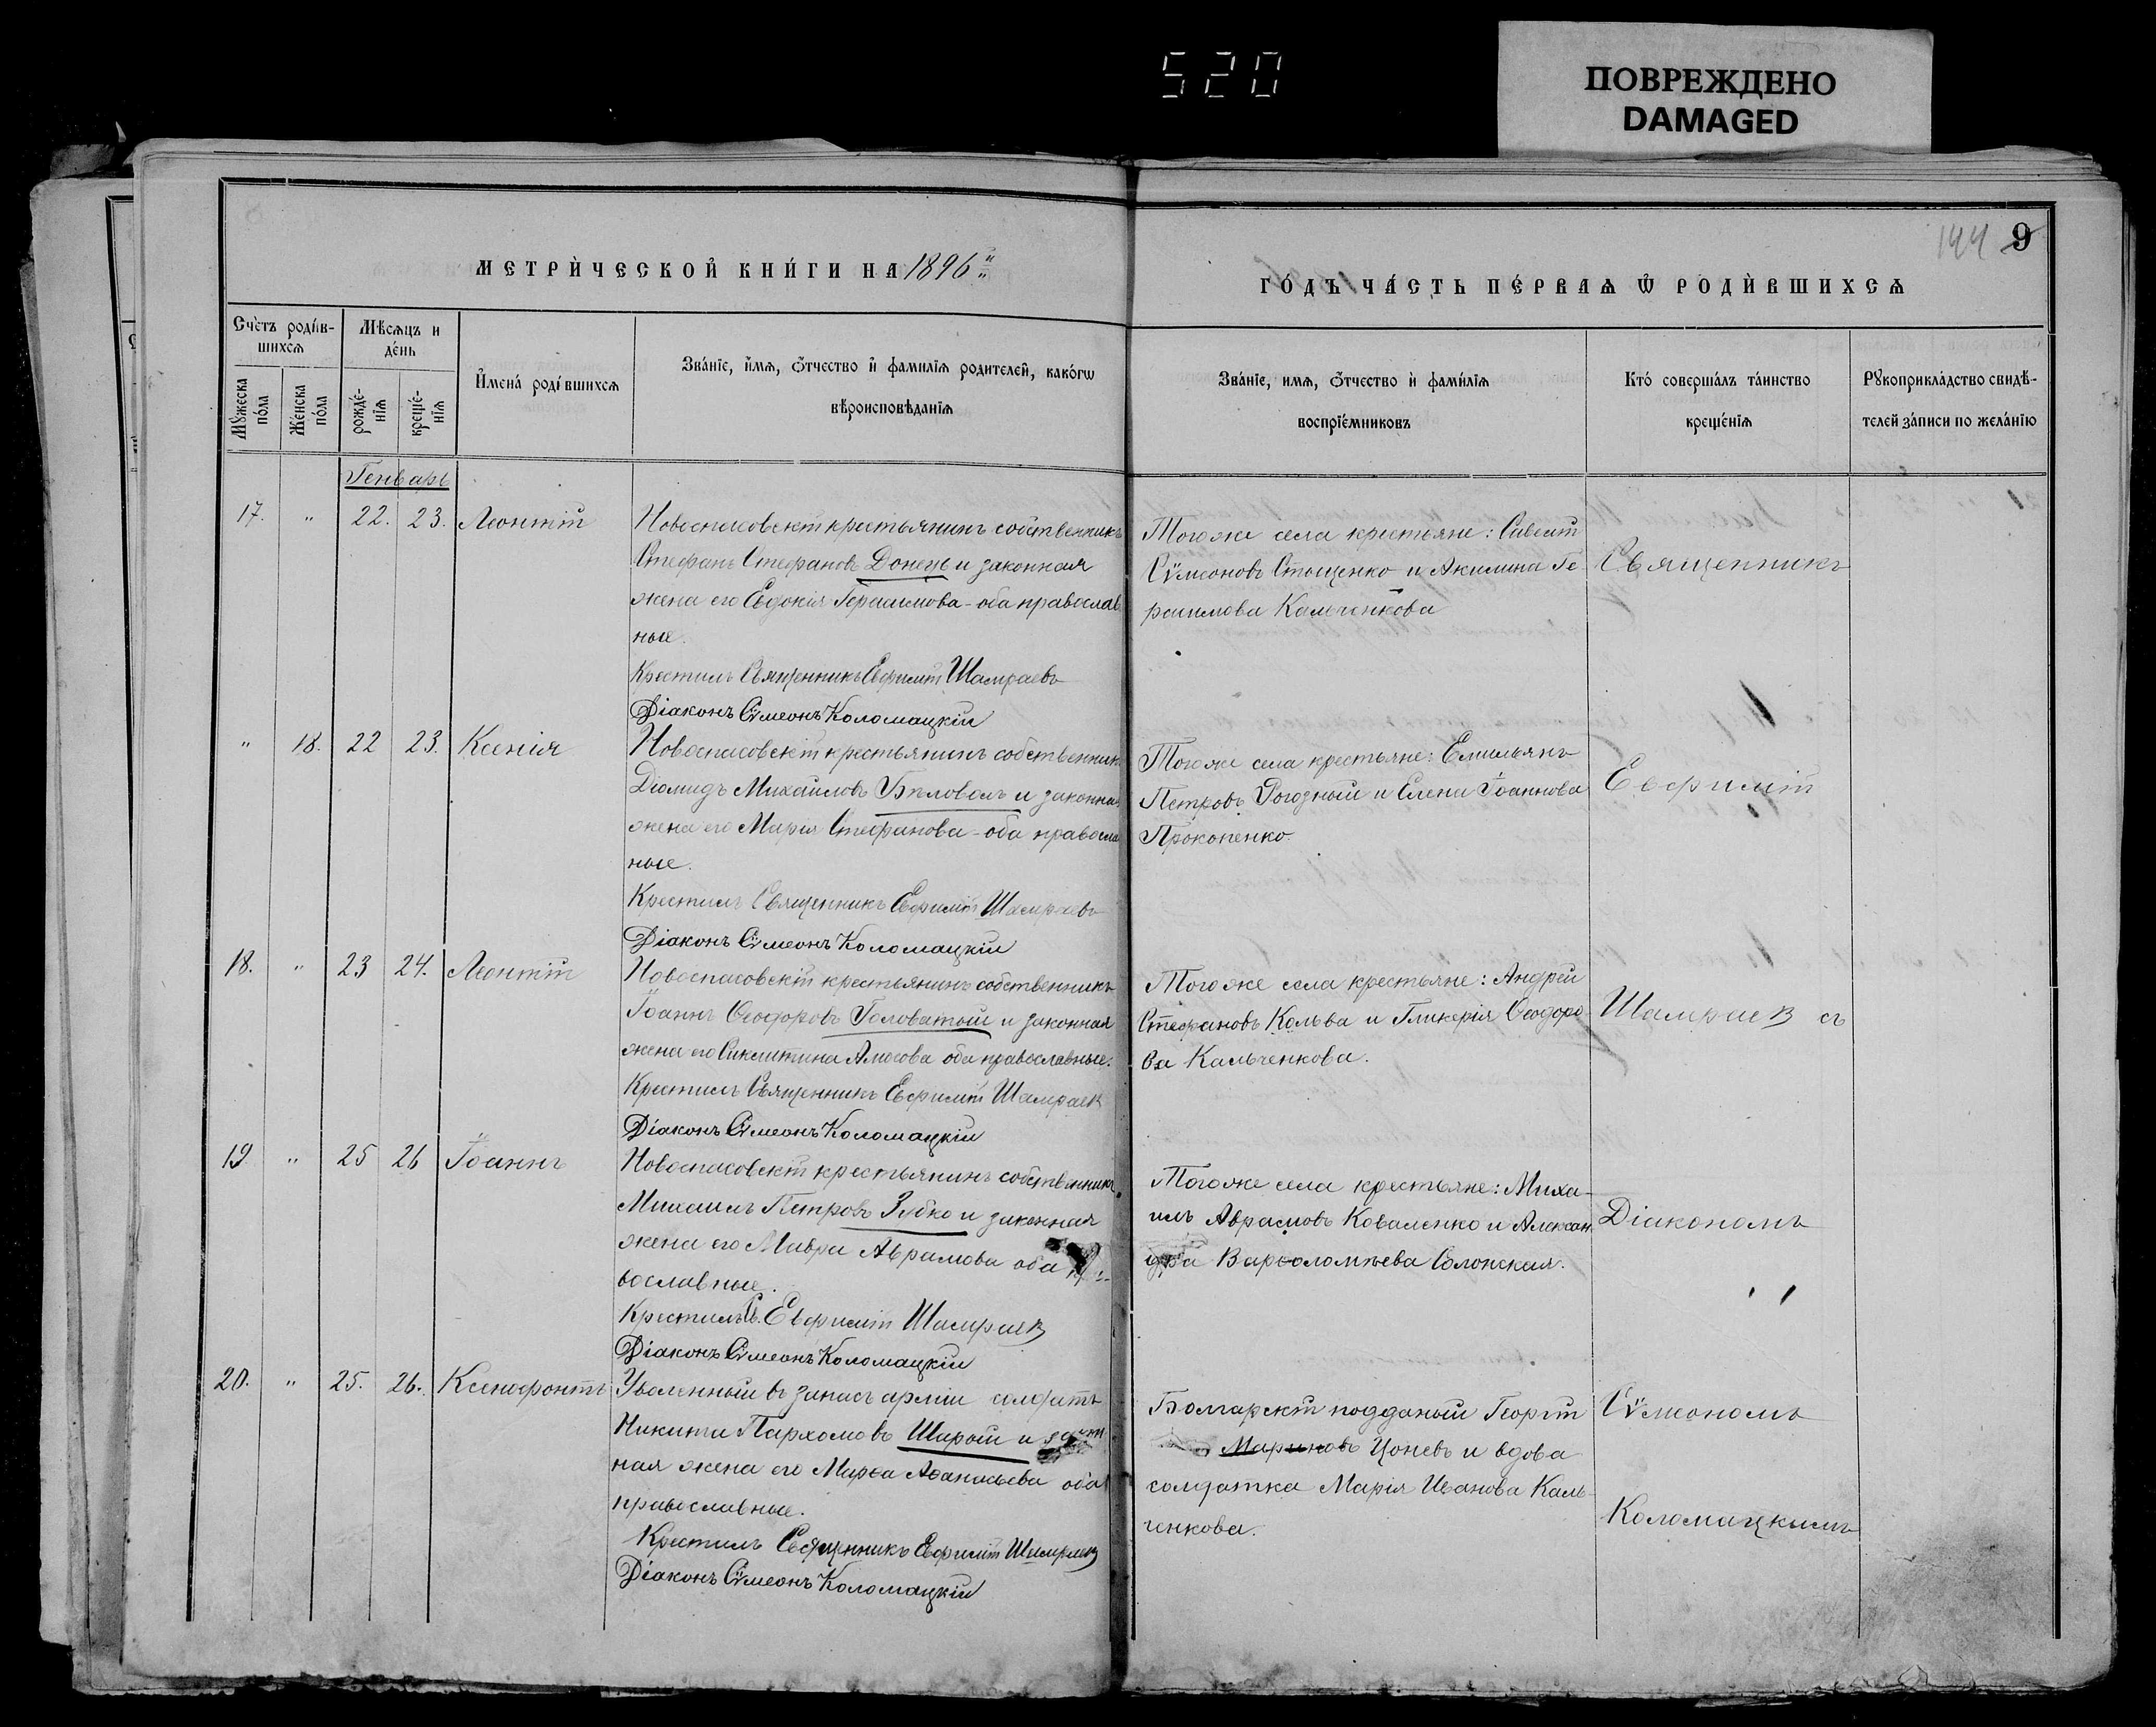 520
ПОВРЕЖДЕНО
DAMAGED
144 9
МЕТРИ́ЧЕСКОЙ КНИ́ГИ НА 1896 й
ГО́ДЪ ЧА́СТЬ ПЕ́РВАѦ Ѿ РОДИ́ВШИХСѦ
Счетъ роди́в-
шихсѧ
Мѣсѧцъ и
де́нь
Мꙋжеска
по́ла
Же́нска
по́ла
рожде́-
нїѧ
креще́-
нїѧ
Имена́ роди́вшихсѧ
Зва́нїе, имѧ, ѻтчество и фамилїѧ родителей, како́гѡ
вѣроисповѣданїѧ
Зва́нїе, имѧ, ѻтчество и фами́лїѧ
воспрїе́мниковъ
Кто́ соверша́лъ та́инство
креще́нїѧ
Рꙋкоприкла́дство свидѣ-
телей за́писи по жела́нїю
Генварь
17. " 22. 23. Леонтій
Новоспасовскій крестьянинъ собственникъ
Стефанъ Стефановъ Донець и законная
жена его Евдокія Герасимова - оба православ
ные.
Крестилъ Священникъ Евфимій Шамраевъ
Діаконъ Сѵмеонъ Коломацкій
Тогоже села крестьяне: Савелій
Сѵмеоновъ Стощенко и Акилина Ге
расимова Кальченкова
Священникъ
" 18. 22 23. Ксенія
Новоспасовскій крестьянинъ собственник
Діомидъ Михайловъ Бѣловолъ и законная
жена его Марія Стефанова - оба правосла
ные.
Крестилъ Священникъ Евфимій Шамраевъ
Діаконъ Сѵмеонъ Коломацкій
Тогоже села крестьяне: Емильянъ
Петровъ Рогозный и Елена Іоаннова
Прокопенко.
Евфимій
18. " 23 24. Леонтій
Новоспасовскій крестьянинъ собственникъ
Іоаннъ Ѳеодоровъ Головатый и законная
жена его Амосова оба православные.
Крестилъ Священникъ Евфимій Шамраев
Діаконъ Сѵмеонъ Коломацкій
Тогоже села крестьяне: Андрей
Стефановъ Кольва и Гликерія Ѳеодоро
ва Кальченкова.
Шамраев съ
19 " 25 26 Іоаннъ
Новоспасовскій крестьянинъ собственникъ
Михаилъ Петровъ Зубко и законная
жена его Мавра Аврамова оба пра-
вославные.
Крестилъ Св. Евфимій Шамраев
Діаконъ Сѵмеонъ Коломацкій
Тогоже села крестьяне: Миха-
илъ Аврамовъ Коваленко и Алексан
дра Варѳоломѣева Солонская.
Діакономъ
20. " 25. 26. Ксенофонтъ
Уволенный въ запасъ арміи солдатъ
Никита Пархомовъ Шарый и закон
ная жена его Марѳа Аѳанасьева оба
православные.
Крестилъ Священникъ Евфимій Шамраев
Діаконъ Сѵмеонъ Коломацкій
Болгарскій подданый Георгій
Мариновъ Цоневъ и вдова
солдатка Марія Иванова Каль-
ченкова.
Сѵмеономъ
Коломацкимъ